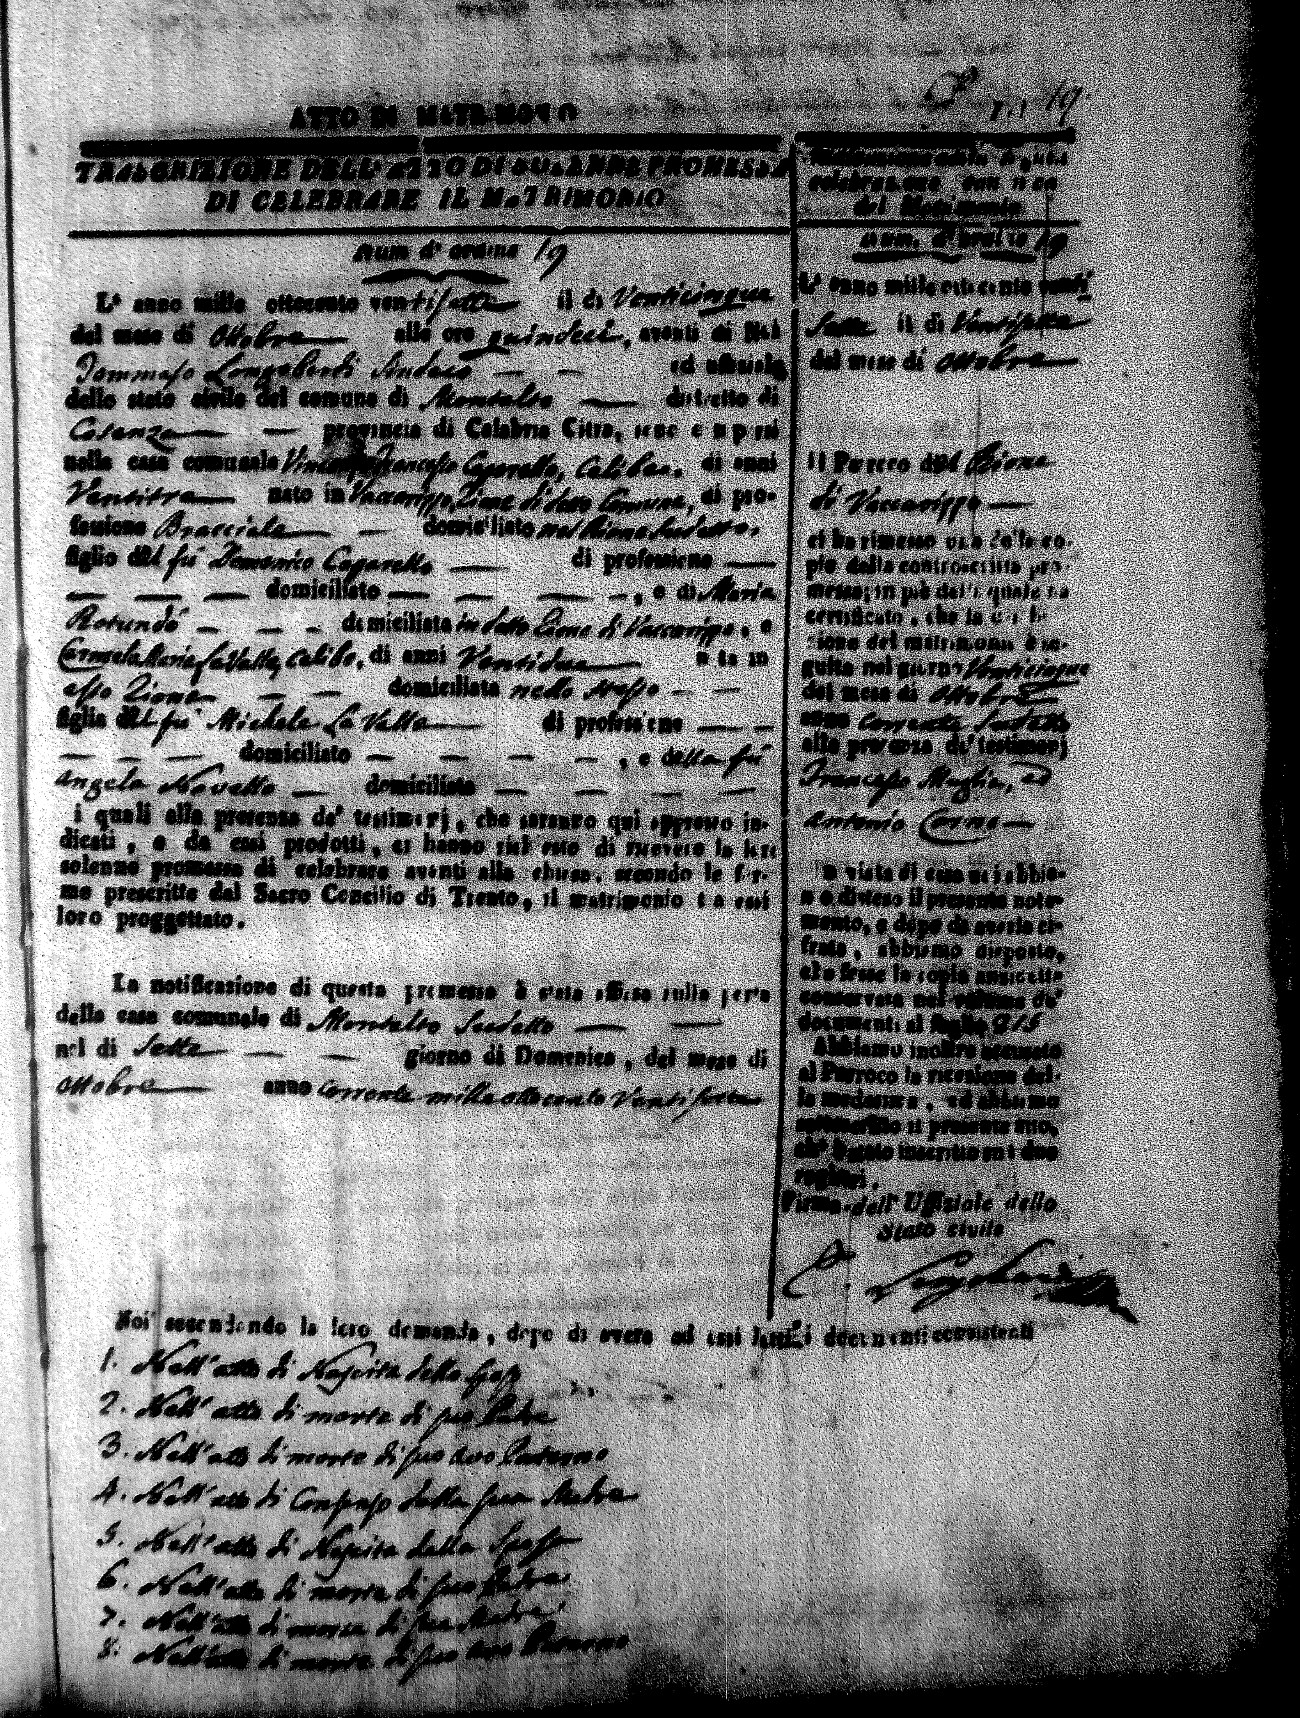 19.
ATTO DI MATRIMONIO
TRASCRIZIONE DELL' ATTO DI SOLENNE PROMESSA
DI CELEBRARE IL MATRIMONIO
Num d' ordine 19
L' anno mille ottocento ventisette il di Venticinque
del mese di Ottobre alle ore quindeci, avanti di Noi
Tommaso Longobardi Sindaco — — ed uffiziale
dello stato civile del comune di Montalto — distretto di
Cosenza — — provincia di Calabria Citra, sono comparsi
nella casa comunale Vincenzo Francesco Caparello, Celibe. di anni
Ventitre — nato in Vaccarizzo, Rione di detto Comune, di pro-
fessione Bracciale — — domiciliato nel Rione sudetto.
figlio del fu Domenico Caparello — di professione —
— — — domiciliato — — — —, e di Maria
Rotundo — — — domiciliata in detto Rione di Vaccarizzo, e
Carmela Maria La Valle, Celibe, di anni Ventidue — nata in
esso Rione — — domiciliata nello stesso — —
figlia del fu Michele La Valle — di professione — —
— — — domiciliato — — — —, e della fu
Angela Novello — domiciliata — — — —
i quali alla presenza de' testimonj, che saranno qui appresso in-
dicati, e da essi prodotti, ci hanno richiesto di ricevere la loro
solenne promessa di celebrare avanti alla chiesa, secondo le for-
me prescritte dal Sacro Concilio di Trento, il matrimonio tra essi
loro proggettato.
La notificazione di questa promessa è stata affissa sulla porta
della casa comunale di Montalto sudetto — —
nel di Sette — — giorno di Domenica, del mese di
Ottobre — anno corrente mille ottocento Ventisette
del Matrimonio
Num. d' ordine 19
L' anno mille ottocento venti
Sette il di Ventisette
del mese di Ottobre —
Il Parroco del Rione
di Vaccarizzo —
ci ha rimesso una delle co-
pie della controscritta pro-
messa; in piè della quale ha
certificato, che la cele-
zione del matrimonio è se-
guita nel giorno Venticinque
del mese di Ottobre
anno corrente sudetto
alla presenza de' testimonj
Francesco Maglia, ed
Antonio —
In vista di essa noi abbia-
mo disteso il presente note-
mento, e dopo di averla ci-
frata, abbiamo disposto,
che fosse la copia anzidetta
conservata nel volume de'
documenti al foglio 215
Abbiamo inoltre accusato
al Parroco la ricezione del-
la medesima, ed abbiamo
sottoscritto il presente atto,
ch' è stato inscritto sui due
registri.
Firma dell' Uffiziale dello
Stato civile
T. Longobardi
Noi secondando la loro domanda, dopo di avere ad essi letti i documenti consistenti
1. Nell' atto di Nascita dello Sposo
2. Nell' atto di morte di suo Padre
3. Nell' atto di morte di suo avo Paterno
4. Nell' atto di Consenso della sua Madre
5. Nell' atto di Nascita della Sposa
6. Nell' atto di morte di suo Padre
7. Nell' atto di morte di sua Madre
8. Nell' atto di morte di suo avo Paterno